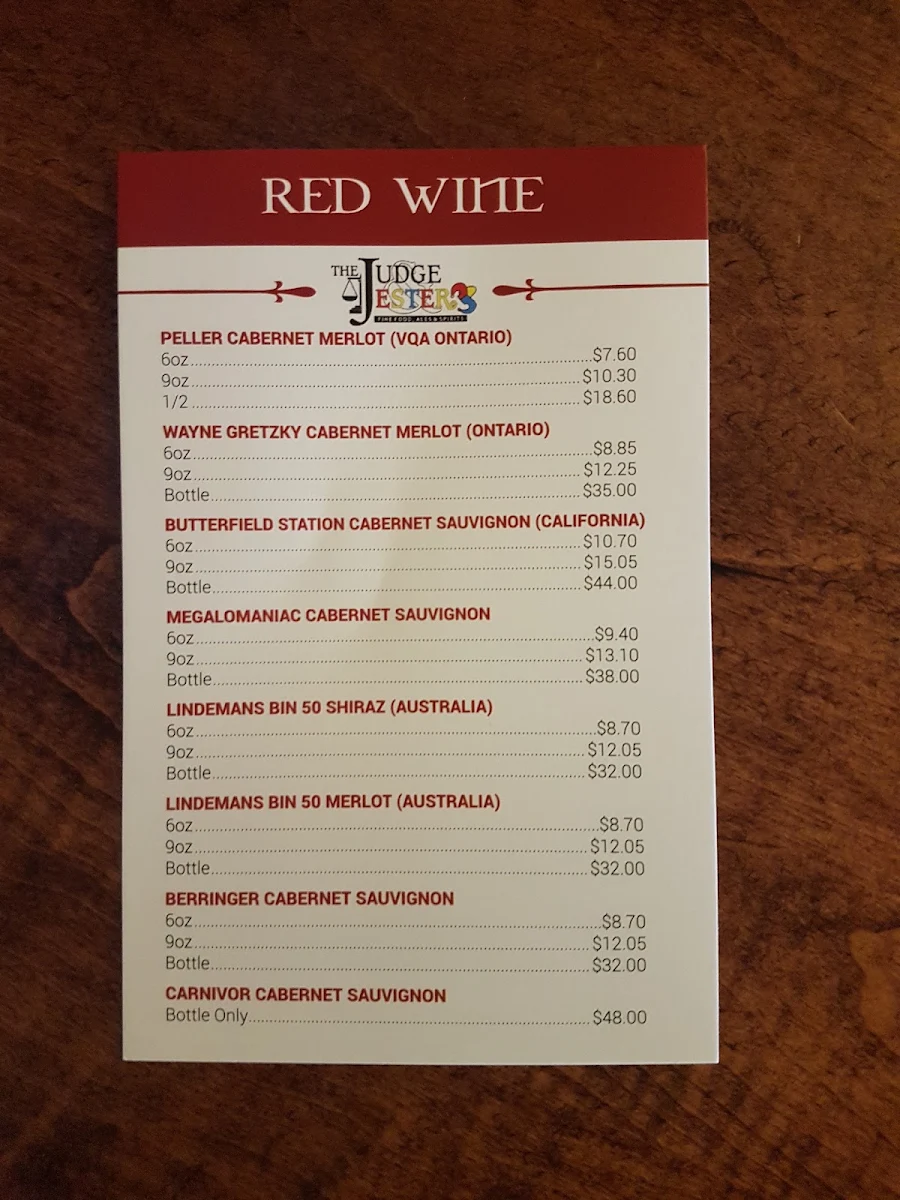 RED WINE
THE JUDGE
& JESTER
FINE FOOD, ALES & SPIRITS
PELLER CABERNET MERLOT (VQA ONTARIO)
6oz $7.60
9oz $10.30
1/2 $18.60
WAYNE GRETZKY CABERNET MERLOT (ONTARIO)
6oz $8.85
9oz $12.25
Bottle $35.00
BUTTERFIELD STATION CABERNET SAUVIGNON (CALIFORNIA)
6oz $10.70
9oz $15.05
Bottle $44.00
MEGALOMANIAC CABERNET SAUVIGNON
6oz $9.40
9oz $13.10
Bottle $38.00
LINDEMANS BIN 50 SHIRAZ (AUSTRALIA)
6oz $8.70
9oz $12.05
Bottle $32.00
LINDEMANS BIN 50 MERLOT (AUSTRALIA)
6oz $8.70
9oz $12.05
Bottle $32.00
BERRINGER CABERNET SAUVIGNON
6oz $8.70
9oz $12.05
Bottle $32.00
CARNIVOR CABERNET SAUVIGNON
Bottle Only $48.00